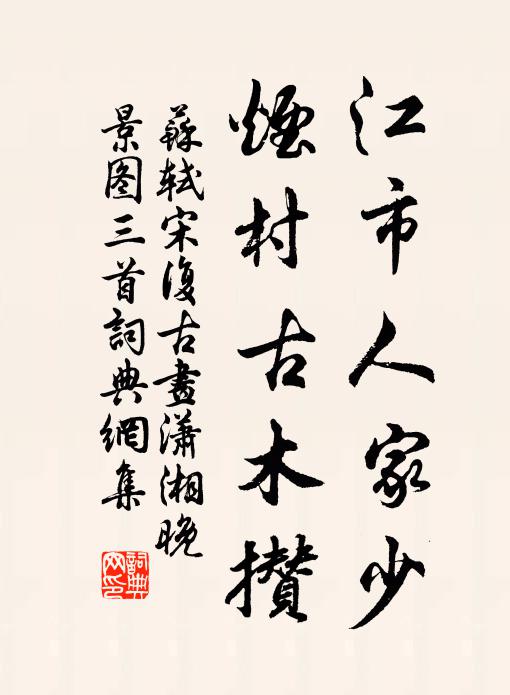 江市人家少
煙村古木攢
蘇軾宋復古畫瀟湘晚
景图三首詞典網集
詞典
网印